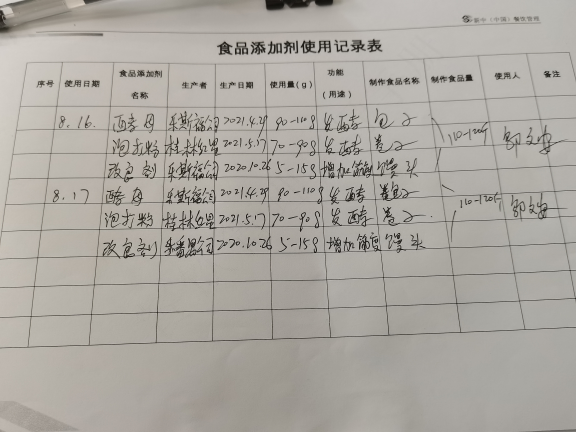 新中(中国)餐饮管理
食品添加剂使用记录表
序号 使用日期 食品添加剂名称 生产者 生产日期 使用量(g) 功能(用途) 制作食品名称 制作食品量 使用人 备注
8.16. 酵母 乐斯福公司 2021.4.29 90-110g 发酵 包子
泡打粉 桂林红星 2021.5.17 70-90g 发酵 卷子 110-120斤
改良剂 乐斯福公司 2020.10.26 5-15g 增加筋度 馒头
8.17 酵母 乐斯福公司 2021.4.29 90-110g 发酵 包子
泡打粉 桂林红星 2021.5.17 70-90g 发酵 卷子. 110-120斤
改良剂 乐斯福公司 2020.10.26 5-15g 增加筋度 馒头